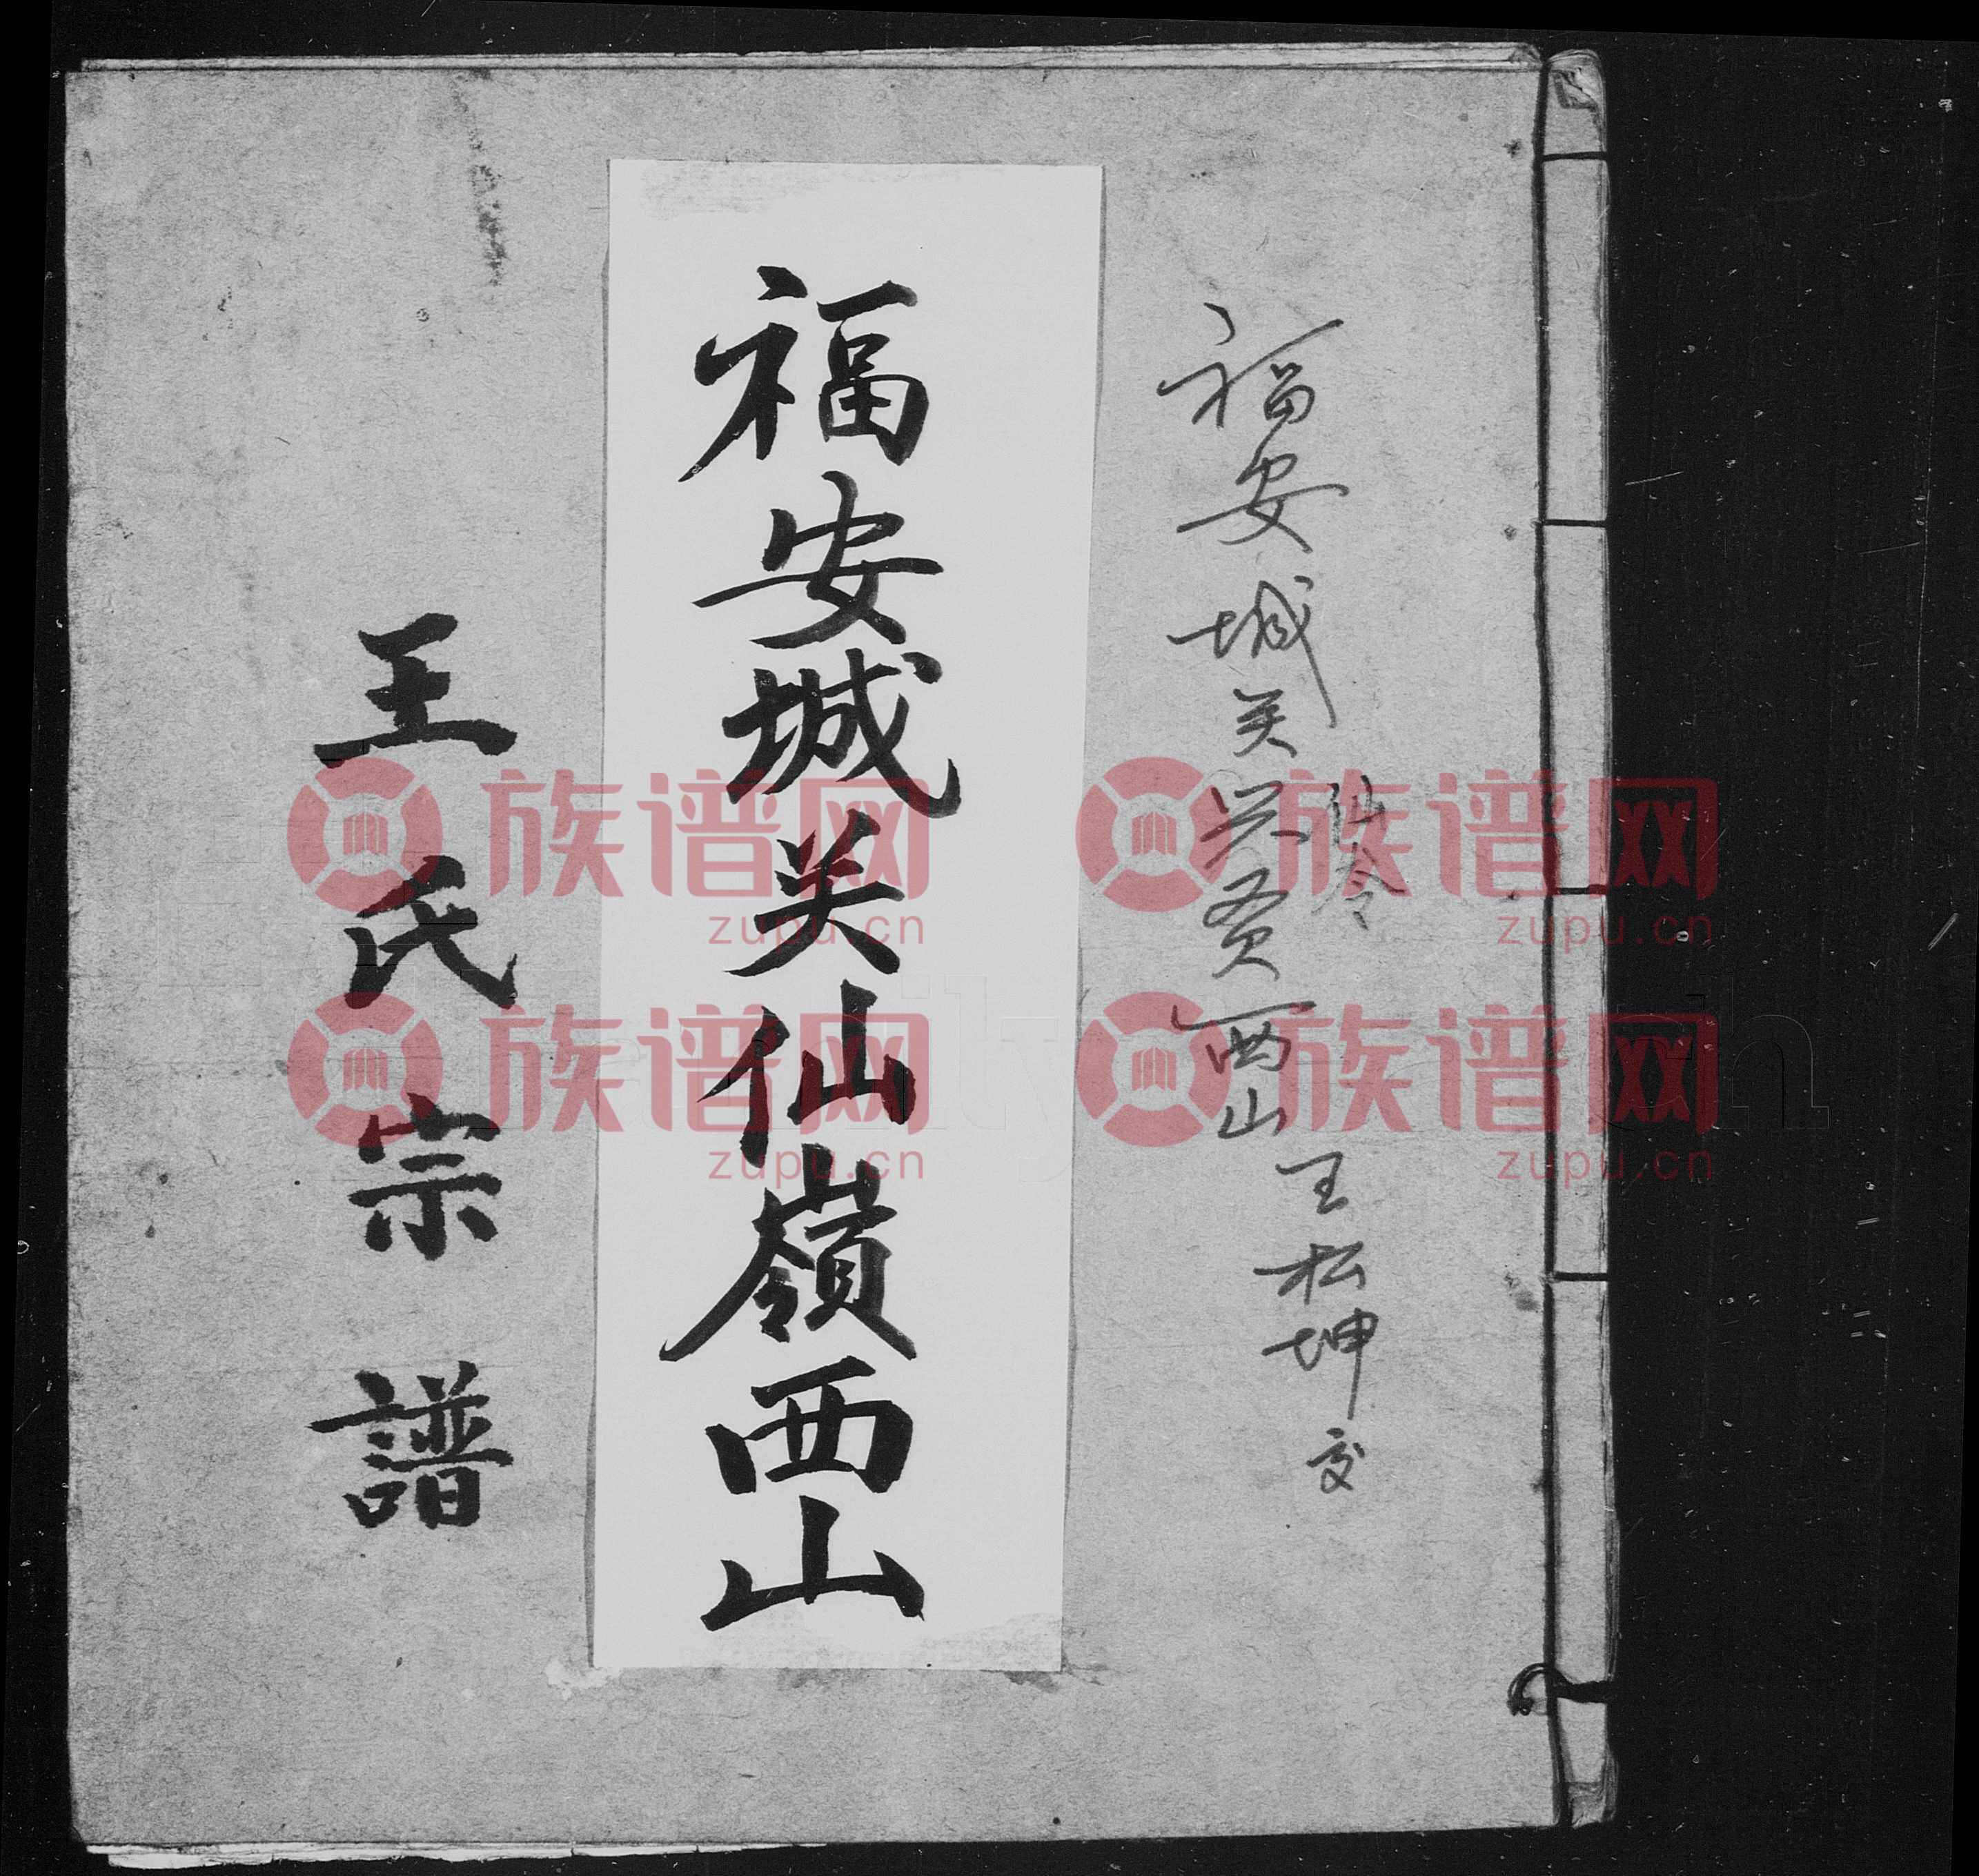 福安城关兴贤西山王松坤交
仙令
福安城关仙嶺西山
王氏宗譜
族谱网 zupu.cn
族谱网 zupu.cn
族谱网 zupu.cn
族谱网 zupu.cn